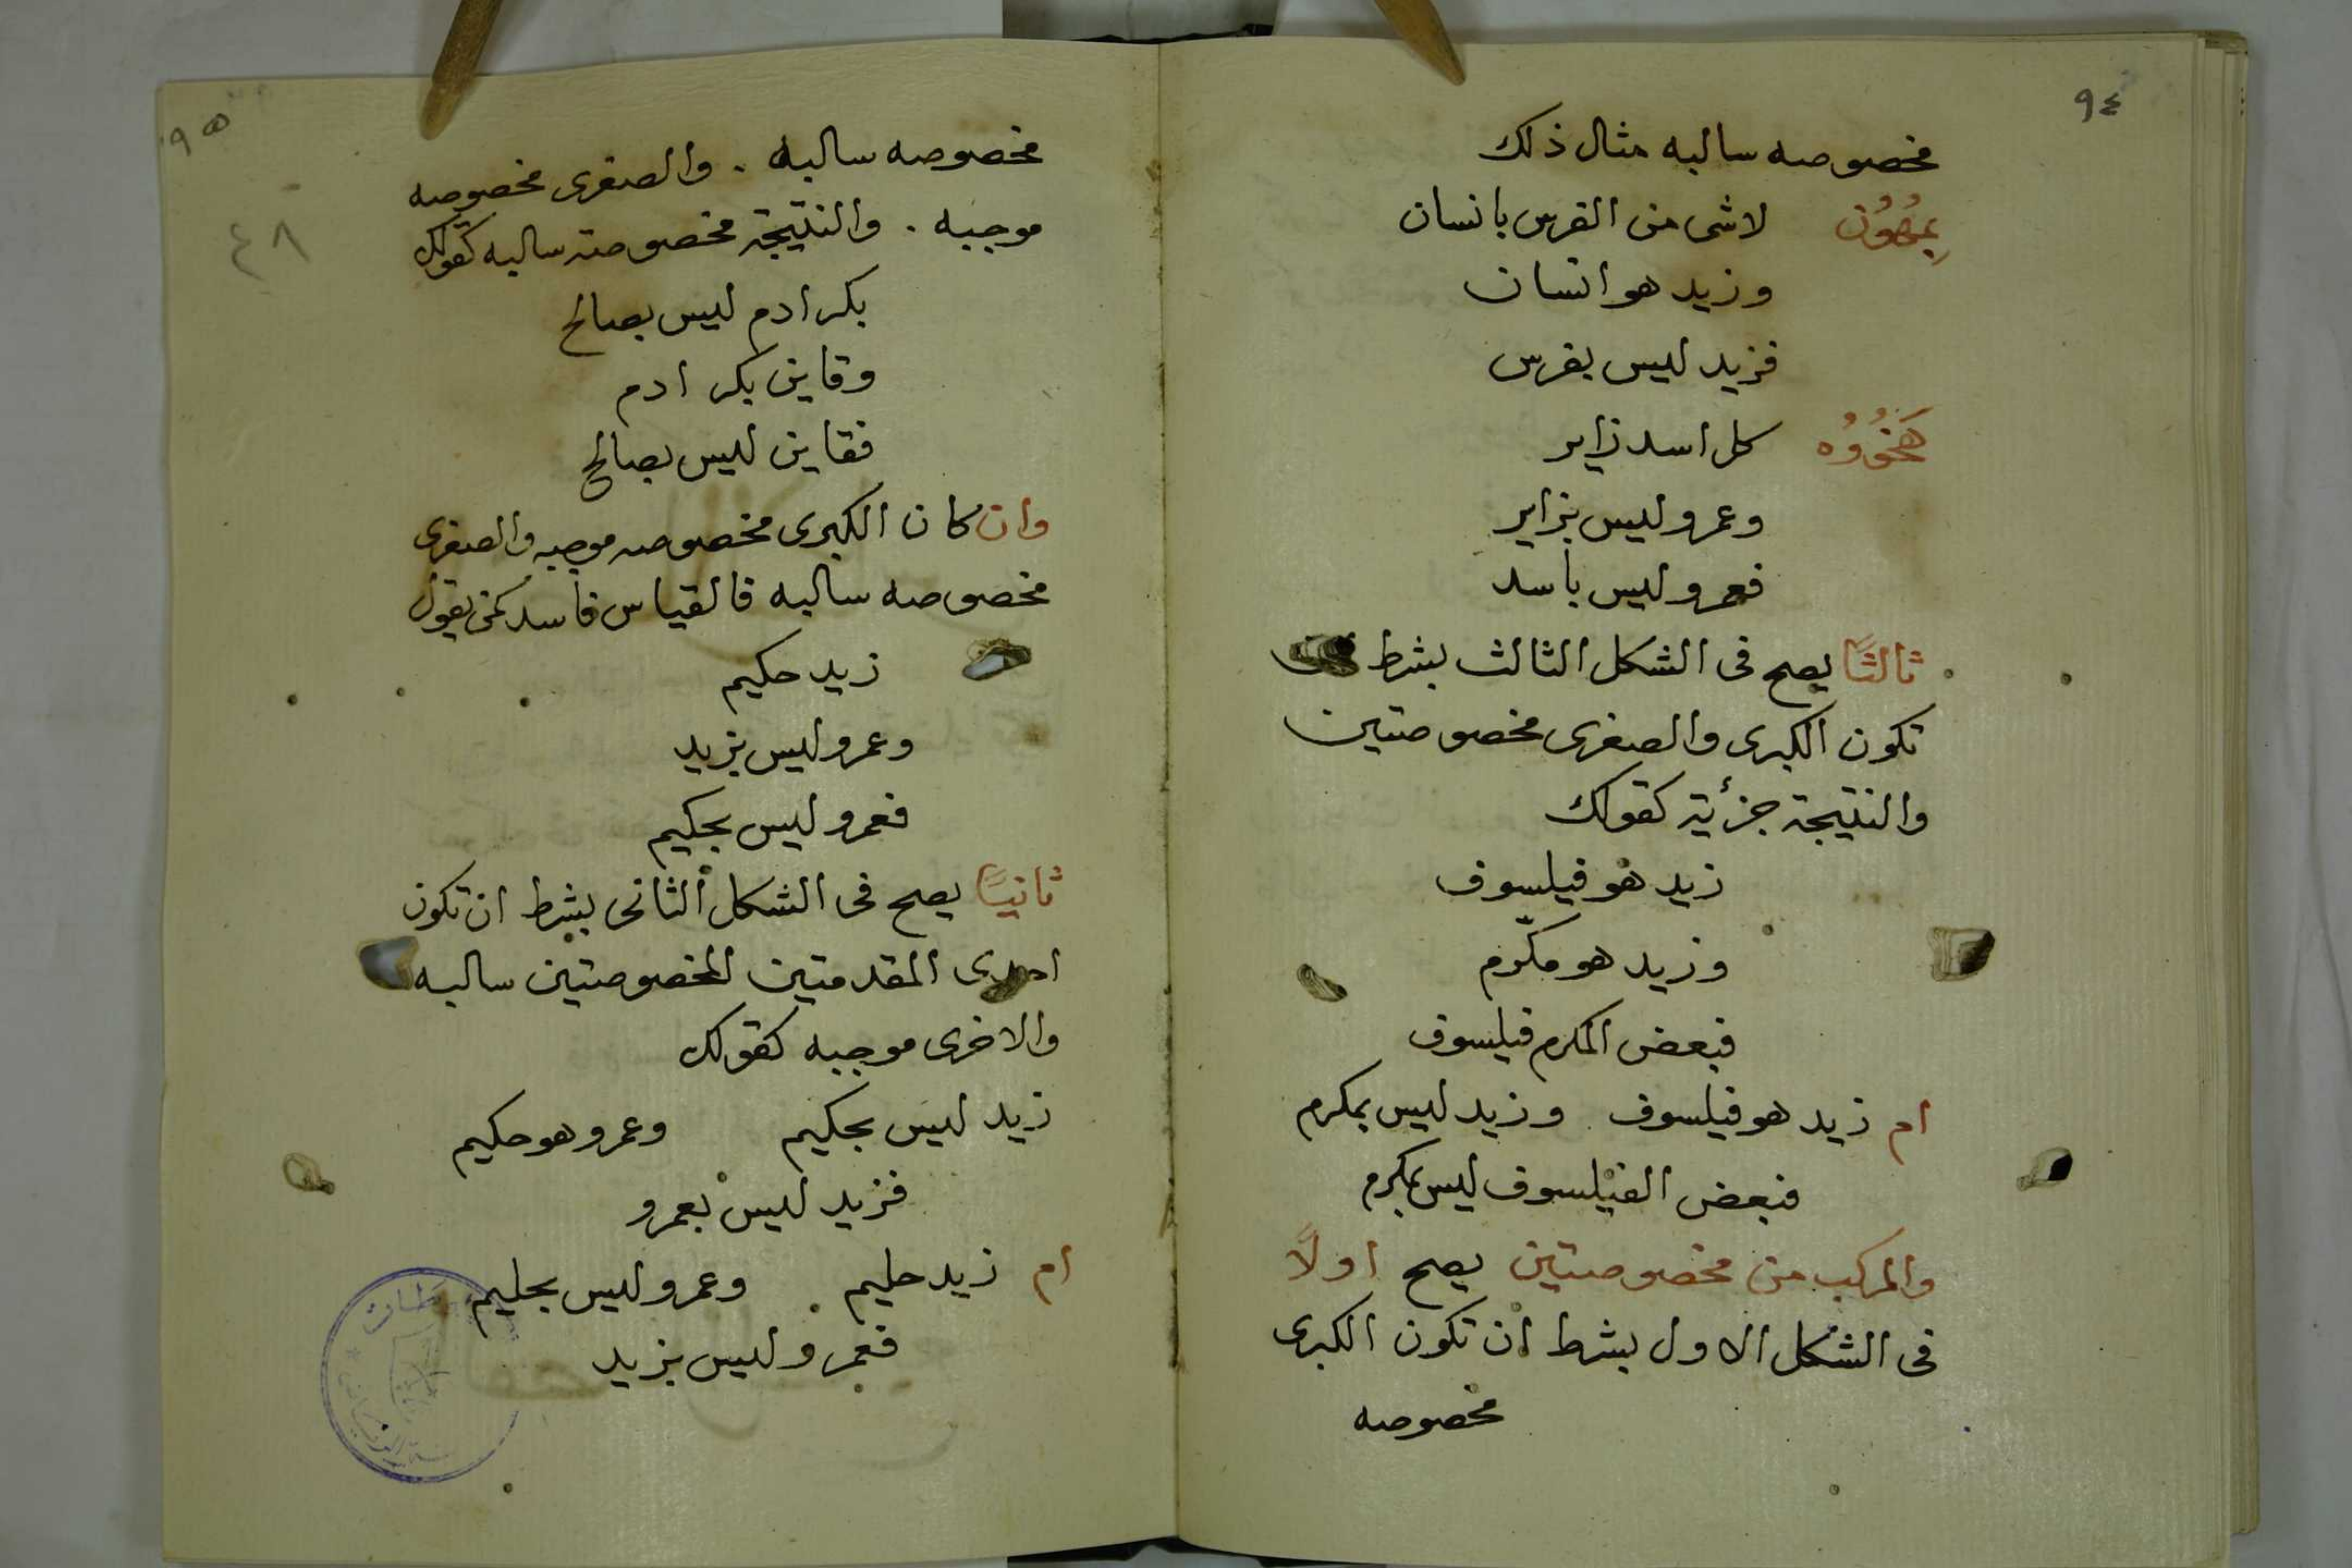 ٩٤
مخصوصه سالبه مثال ذلك
لاشى من الفرس بانسان
وزيد هو انسان
فزيد ليس بفرس
كل اسد زاير
وعمرو ليس بزاير
فعمرو ليس باسد
ثالثًا يصح فى الشكل الثالث بشرط
تكون الكبرى والصغرى مخصوصتين
والنتيجة جزأية كقولك
زيد هو فيلسوف
وزيد هو مكّرم
فبعض المكرم فيلسوف
ام زيد هو فيلسوف . وزيد ليس بمكرم
فبعض الفيلسوف ليس بمكرم
والمركب من مخصوصتين يصح اولًا
فى الشكل الاول بشرط ان تكون الكبرى
مخصوصه
٩٥
٤٨
مخصوصه سالبه . والصغرى مخصوصه
موجبه . والنتيجة مخصوصة سالبه كقولك
بكر ادم ليس بصالح
وقاين بكر ادم
فقاين ليس بصالح
وان كان الكبرى مخصوصه موجبه والصغرى
مخصوصه سالبه فالقياس فاسد كمن يقول
زيد حكيم
وعمرو ليس بزيد
فعمرو ليس بحكيم
ثانيًا يصح فى الشكل الثانى بشرط ان تكون
احدى المقدمتين المخصوصتين سالبه
والاخرى موجبه كقولك
زيد ليس بحكيم وعمرو هو حكيم
فزيد ليس بعمرو
ام زيد حليم . وعمرو ليس بحليم
فعمرو ليس بزيد